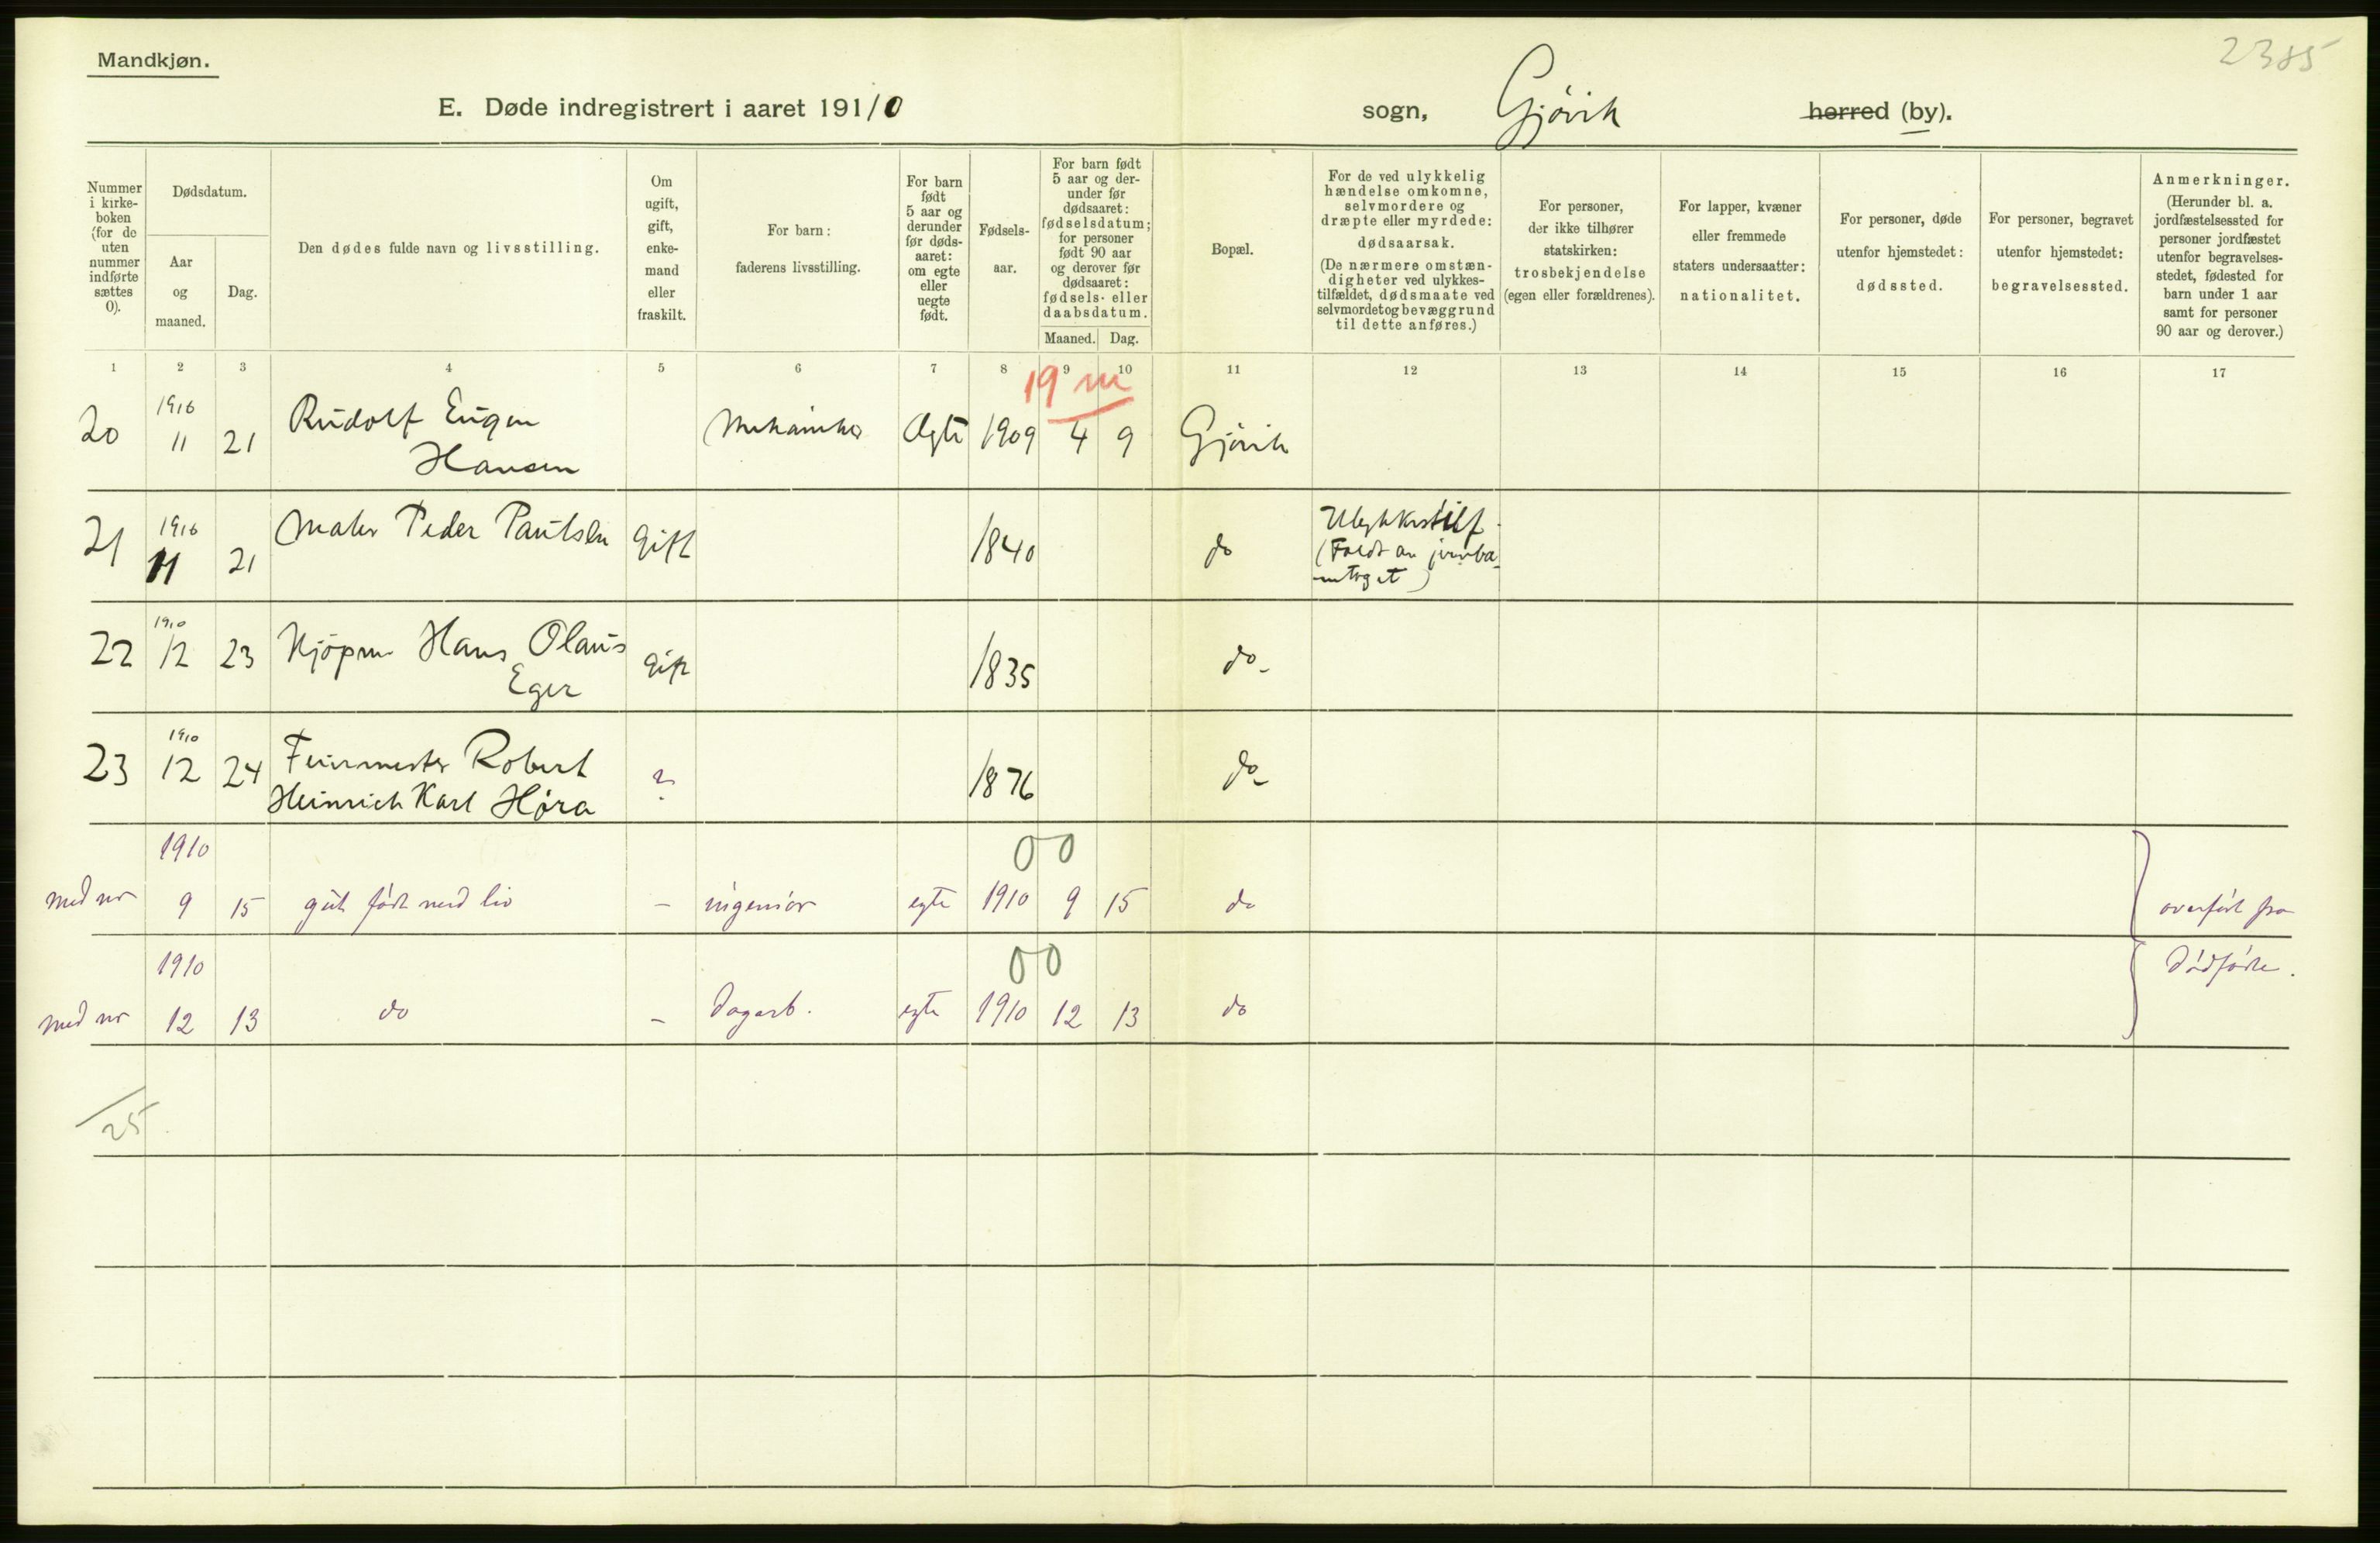 Mandkjøn.
2385
E. Døde indregistrert i aaret 191/0
sogn, Gjøvik herred (by).
Nummer i kirke-boken (for de uten nummer indførte sættes 0).
Dødsdatum.
Aar og maaned.
Dag.
Den dødes fulde navn og livsstilling.
Om ugift, gift, enke-mand eller fraskilt.
For barn: faderens livsstilling.
For barn født 5 aar og derunder før døds-aaret: om egte eller uegte født.
Fødsels-aar.
For barn født 5 aar og der-under før dødsaaret: fødselsdatum; for personer født 90 aar og derover før dødsaaret: fødsels- eller daabsdatum.
Maaned. Dag.
Bopæl.
For de ved ulykkelig hændelse omkomne, selvmordere og dræpte eller myrdede: dødsaarsak.
(De nærmere omstæn-digheter ved ulykkes-tilfældet, dødsmaate ved selvmord og bevæggrund til dette anføres.)
For personer, der ikke tilhører statskirken: trosbekjendelse (egen eller forældrenes).
For lapper, kvæner eller fremmede staters undersaatter: nationalitet.
For personer, døde utenfor hjemstedet: dødssted.
For personer, begravet utenfor hjemstedet: begravelsessted.
Anmerkninger.
(Herunder bl. a. jordfæstelsessted for personer jordfæstet utenfor begravelses-stedet, fødested for barn under 1 aar samt for personer 90 aar og derover.)
1 2 3 4 5 6 7 8 9 10 11 12 13 14 15 16 17
19 m
20 1910 11 21 Rudolf Eugen Hansen Mekaniker Ægte 1909 4 9 Gjøvik
21 1910 11 21 Maler Peder Paulsen Gift 1840 do Ulykkestilf. (Faldt av jernba-netoget)
22 1910 12 23 Kjøpm. Hans Olaus Eger Gift 1835 do.
23 1910 12 24 Feiermester Robert Heinrich Karl Höra ? 1876 do.
00
med nr 1910 9 15 gut født med liv - ingeniør egte 1910 9 15 do overført fra
00
med nr 1910 12 13 do - Dagarb. egte 1910 12 13 do Dødfødte.
25